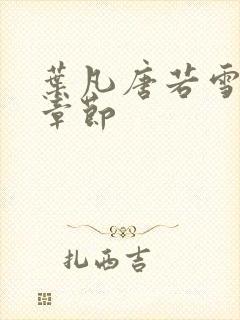 葉凡唐若雪
章節
扎西吉